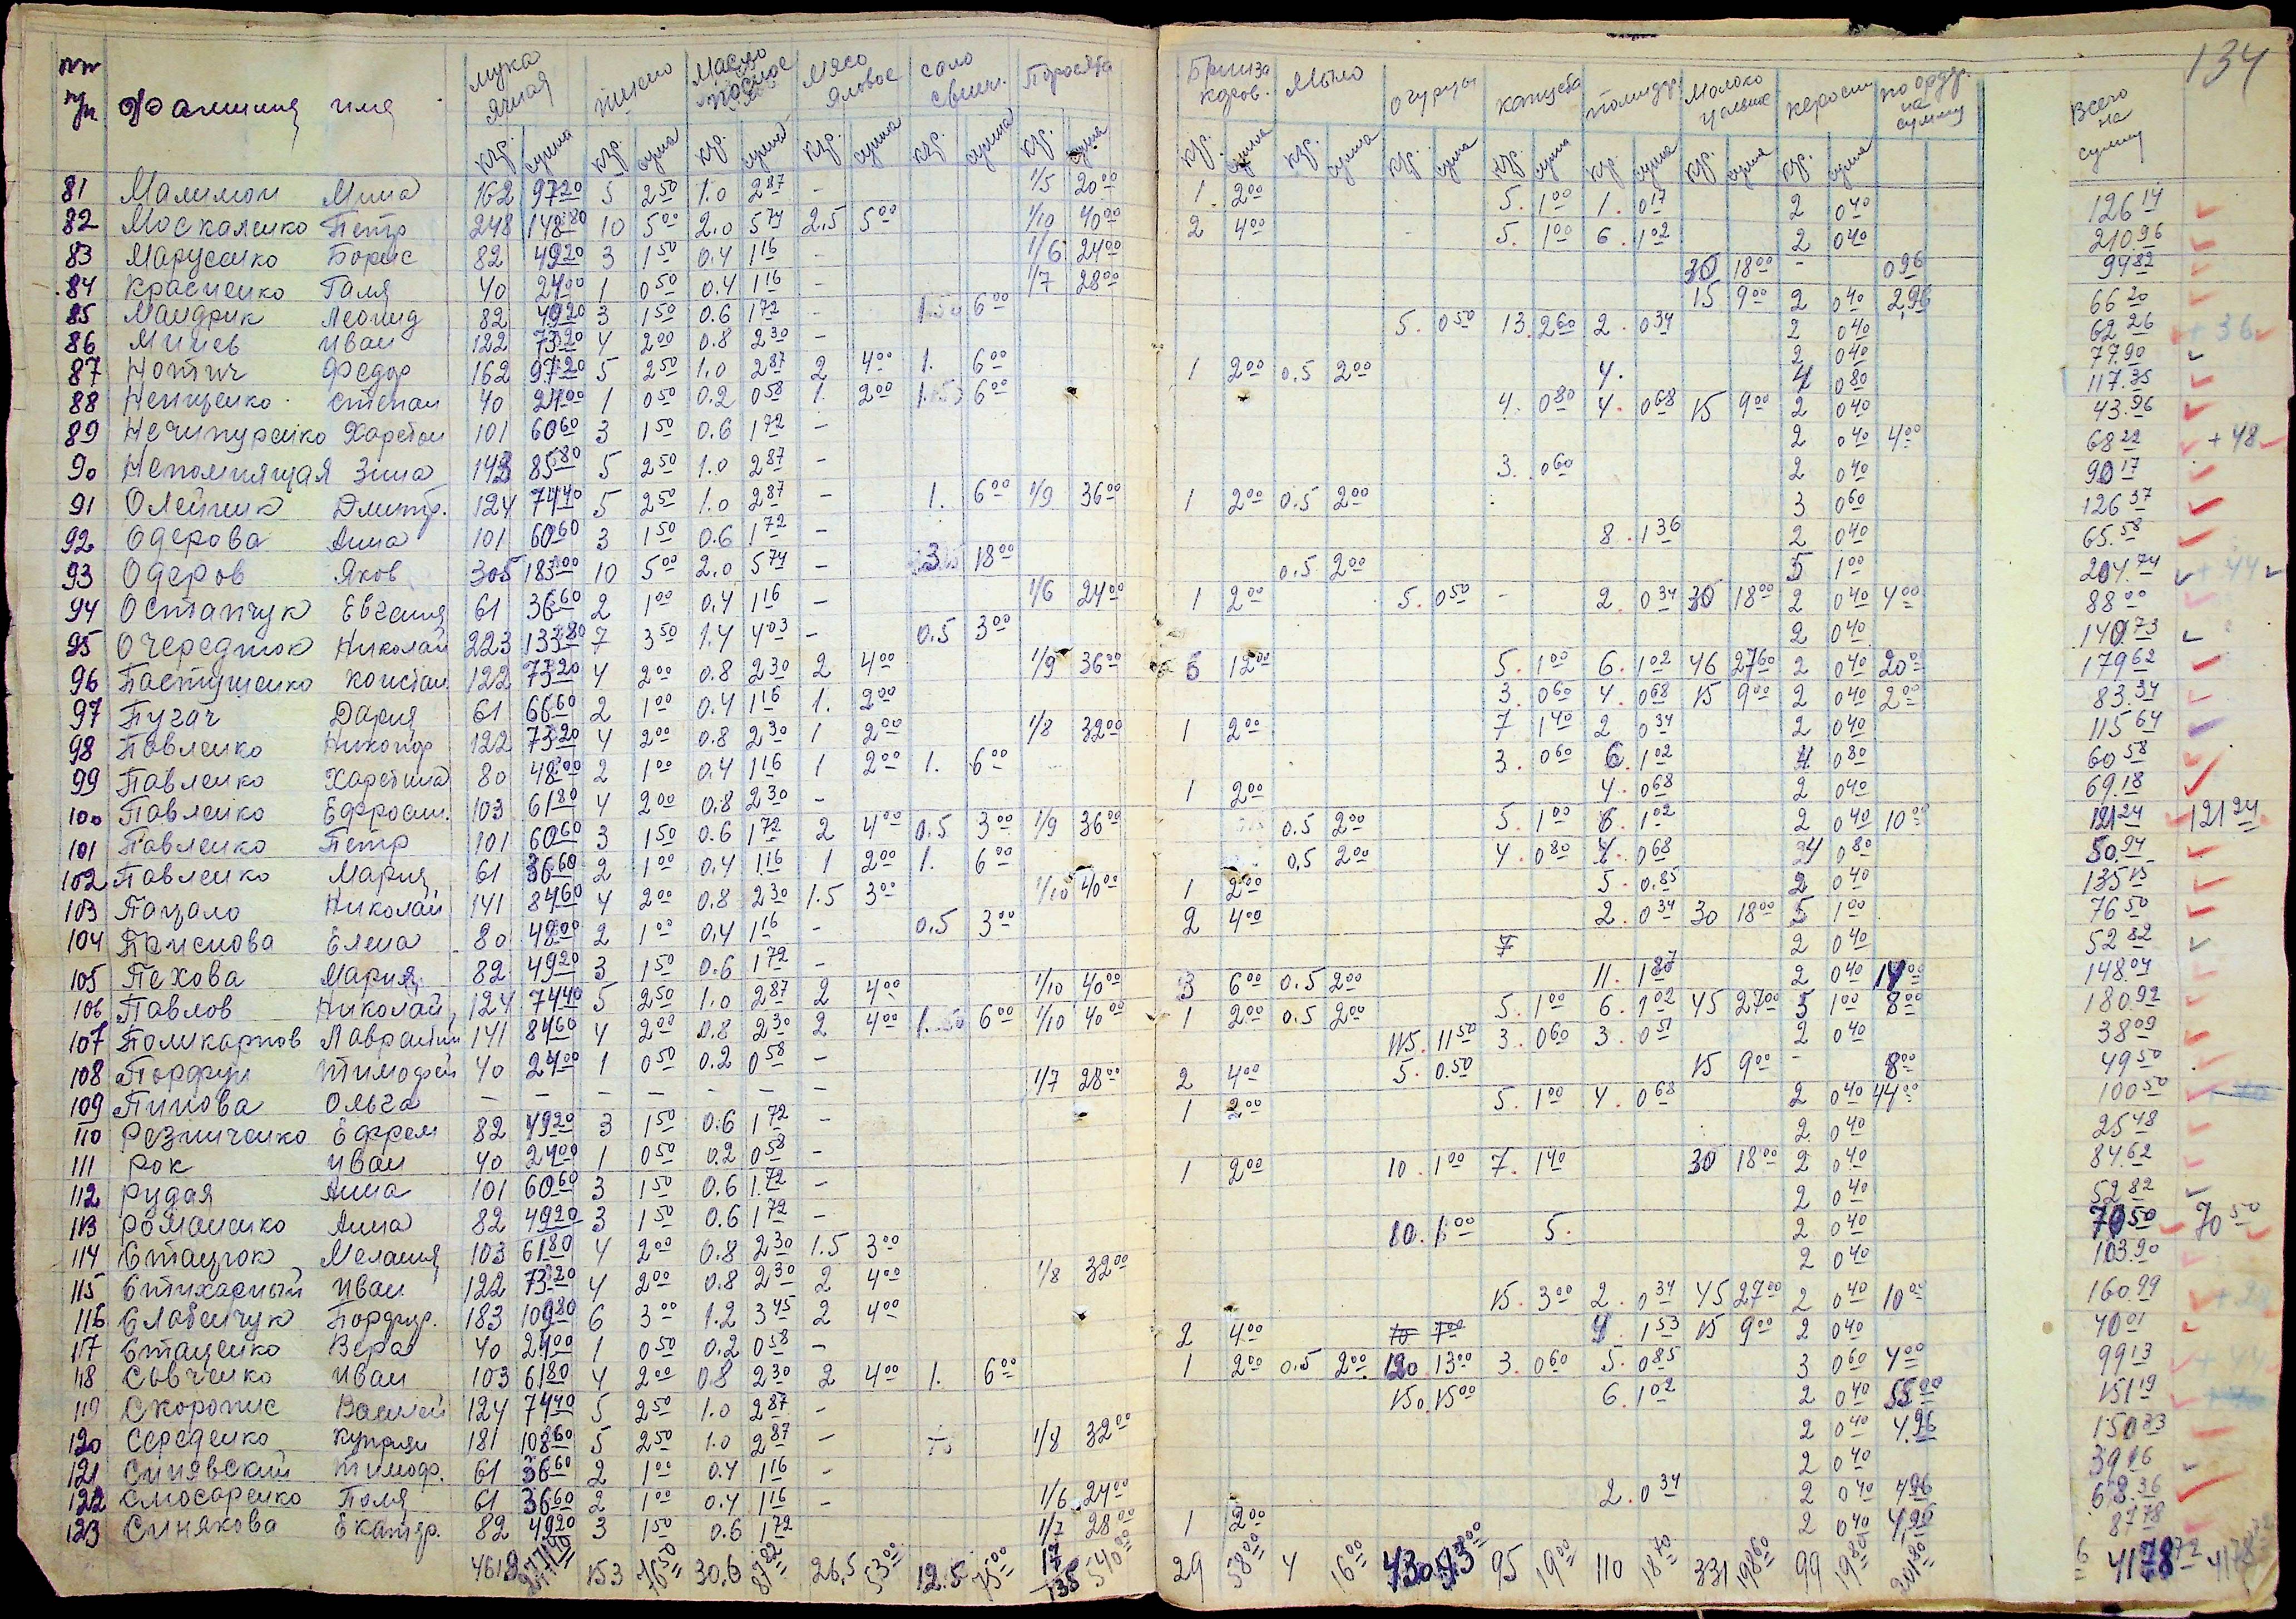 134
№№ п/п Фамилия имя мука ячная пшено Масло постное Мясо яловое сало свин. Поросята Брынза коров. Мыло огурцы капуста помидор Молоко цельное керосин по ордер. на сумму Всего на сумму
кгр. сума кгр. сума кгр. сума кгр. сума кгр. сума кгр. сума кгр. сума кгр. сума кгр. сума кгр. сума кгр. сума кгр. сума кгр. сума
81 Малимон Миша 162 97 20 5 2 50 1.0 2 87 - 1/5 20 00 1. 2 00 5. 1 00 1. 0 17 2 0 40 126 14
82 Москаленко Петр 248 148 80 10 5 00 2.0 5 74 2.5 5 00 1/10 40 00 2 4 00 5. 1 00 6. 1 02 2 0 40 210.96
83 Марусенко Борис 82 49 20 3 1 50 0.4 1 16 - 1/6 24 00 30 18 00 - 0 96 94 82
84 Красненко Галя 40 24 00 1 0 50 0.4 1 16 - 1/7 28 00 15 9 00 2 0 40 2,96 66 20
85 Мандрик Леонид 82 49 20 3 1 50 0.6 1 72 - 1.50 6 00 5. 0 50 13. 2 60 2. 0 34 2 0 40 62 26 + 36
86 Минев Иван 122 73 20 4 2 00 0.8 2 30 - 2 0 40 77.90
87 Нотич Федор 162 97 20 5 2 50 1.0 2 87 2 4 00 1. 6 00 1 2 00 0.5 2 00 4. 4 0 80 117.35
88 Ненценко Степан 40 24 00 1 0 50 0.2 0 58 1. 2 00 6 00 4. 0 80 4. 0 68 15 9 00 2 0 40 43.96
89 Нечипуренко Харетон 101 60 60 3 1 50 0.6 1 72 - 2 0 40 4 00 68 22 + 48
90 Непомнящая Зина 143 85 80 5 2 50 1.0 2 87 - 3. 0 60 2 0 40 90 17
91 Олейник Дмитр. 124 74 40 5 2 50 1.0 2 87 - 1. 6 00 1/9 36 00 1 2 00 0.5 2 00 3 0 60 126 37
92 Одерова Анна 101 60 60 3 1 50 0.6 1 72 - 8. 1 36 2 0 40 65.58
93 Одеров Яков 305 183 00 10 5 00 2.0 5 74 - 3 18 00 0.5 2 00 5 1 00 204.74 + 44
94 Остапчук Евгения 61 36 60 2 1 00 0.4 1 16 - 1/6 24 00 1 2 00 5. 0 50 - 2. 0 34 30 18 00 2 0 40 4 00 88 00
95 Очереднюк Николай 223 133 80 7 3 50 1.4 4 03 - 0.5 3 00 2 0 40 140 73
96 Пастушенко Констан 122 73 20 4 2 00 0.8 2 30 2 4 00 1/9 36 00 6 12 00 5. 1 00 6. 1 02 46 27 60 2 0 40 20 00 179 62
97 Пугач Дария 61 66 60 2 1 00 0.4 1 16 1. 2 00 3. 0 60 4. 0 68 15 9 00 2 0 40 2 00 83.34
98 Павленко Никонор 122 73 20 4 2 00 0.8 2 30 1 2 00 1/8 32 00 1 2 00 7 1 40 2 0 34 2 0 40 115 64
99 Павленко Харетина 80 48 00 2 1 00 0.4 1 16 1 2 00 1. 6 00 3. 0 60 6. 1 02 4 0 80 60 58
100 Павленко Ефросин. 103 61 80 4 2 00 0.8 2 30 - 1 2 00 4. 0 68 2 0 40 69.18
101 Павленко Петр 101 60 60 3 1 50 0.6 1 72 2 4 00 0.5 3 00 1/9 36 00 0.5 2 00 5. 1 00 6. 1 02 2 0 40 10 00 121 24 121 24
102 Павленко Мария 61 36 60 2 1 00 0.4 1 16 1 2 00 1. 6 00 0,5 2 00 4. 0 80 4. 0 68 4 0 80 50.94
103 Пацало Николай 141 84 60 4 2 00 0.8 2 30 1.5 3 00 1/10 40 00 1 2 00 5. 0.85 2 0 40 135 15
104 Паиснова Елена 80 48 00 2 1 00 0,4 1 16 - 0.5 3 00 2 4 00 2. 0 34 30 18 00 5 1 00 76 50
105 Пехова Мария 82 49 20 3 1 50 0.6 1 72 - 7 2 0 40 52 82
106 Павлов Николай 124 74 40 5 2 50 1.0 2 87 2 4 00 1/10 40 00 3 6 00 0.5 2 00 11. 1 87 2 0 40 14 00 148.04
107 Поликарпов Лаврентий 141 84 60 4 2 00 0.8 2 30 2 4 00 1. 6 00 1/10 40 00 1 2 00 0.5 2 00 5. 1 00 6. 1 02 45 27 00 5 1 00 8 00 180.92
108 Порфун Тимофей 40 24 00 1 0 50 0.2 0 58 - 115. 11 50 3. 0 60 3. 0 51 2 0 40 38 09
109 Пинова Ольга - - - - - - - 1/7 28 00 2 4 00 5. 0.50 15 9 00 - 8 00 49 50
110 Резниченко Ефрем 82 49 20 3 1 50 0.6 1 72 - 1 2 00 5. 1 00 4. 0 68 2 0 40 44 00 100 50
111 Рок Иван 40 24 00 1 0 50 0.2 0 58 - 2 0 40 25 48
112 Рудая Анна 101 60 60 3 1 50 0.6 1.72 - 1 2 00 10. 1 00 7. 1 40 30 18 00 2 0 40 84.62
113 Романенко Анна 82 49 20 3 1 50 0.6 1 72 - 2 0 40 52 82
114 Стацюк Мелания 103 61 80 4 2 00 0.8 2 30 1.5 3 00 10. 1.00 5. 2 0 40 70 50 70 50
115 Стихарный Иван 122 73 20 4 2 00 0.8 2 30 2 4 00 1/8 32 00 2 0 40 103.90
116 Слабенчук Порфир. 183 109 80 6 3 00 1.2 3 45 2 4 00 15. 3 00 2. 0 34 45 27 00 2 0 40 10 00 160.99
117 Стаценко Вера 40 24 00 1 0 50 0.2 0 58 - 2 4 00 10 1 00 9. 1 53 15 9 00 2 0 40 40 01
118 Савченко Иван 103 61 80 4 2 00 0.8 2 30 2 4 00 1. 6 00 1 2 00 0.5 2 00 130 13 00 3. 0 60 5. 0 85 3 0 60 4 00 99 13 + 44
119 Скоропис Василий 124 74 40 5 2 50 1.0 2 87 - 150. 15 00 6. 1 02 2 0 40 55 00 151 19
120 Середенко Куприян 181 108 60 5 2 50 1.0 2 87 - 1/8 32 00 2 0 40 4,96 150 83
121 Синявский Тимоф. 61 36 60 2 1 00 0.4 1 16 - 2 0 40 39 16
122 Слюсаренко Поля 61 36 60 2 1 00 0.4 1 16 - 1/6 24 00 2. 0 34 2 0 40 4 96 68.36
123 Синякова Екатер. 82 49 20 3 1 50 0.6 1 72 1/7 28 00 1 2 00 2 0 40 4,96 87 78
4619 2771 40 153 76 50 30,6 87 82 26,5 53 00 12.5 75 00 17 135 540 00 29 58 00 4 16 00 430 43 00 95 19 00 110 18 70 331 198 60 99 19 80 201 80 4178 72 4178